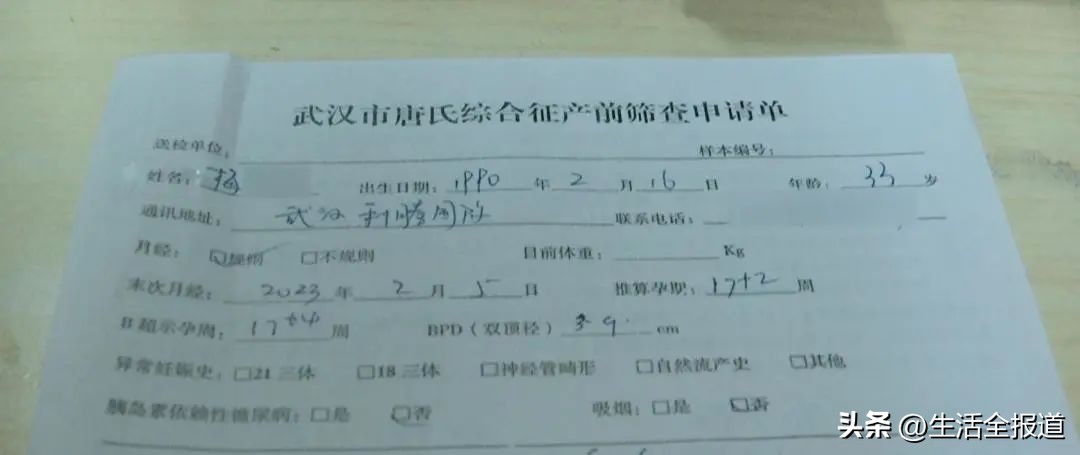 武汉市唐氏综合征产前筛查申请单
送检单位: 样本编号:
姓名: 杨 出生日期: 1990 年 2 月 16 日 年龄: 33 岁
通讯地址: 武汉 联系电话:
月经: ☑规则 □不规则 目前体重: Kg
末次月经: 2023 年 2 月 5 日 推算孕期: 17+2 周
B超示孕周: 17+4 周 BPD(双顶径) 39 cm
异常妊娠史: □21三体 □18三体 □神经管畸形 □自然流产史 □其他
胰岛素依赖性糖尿病: □是 ☑否 吸烟: □是 ☑否
头条 @生活全报道